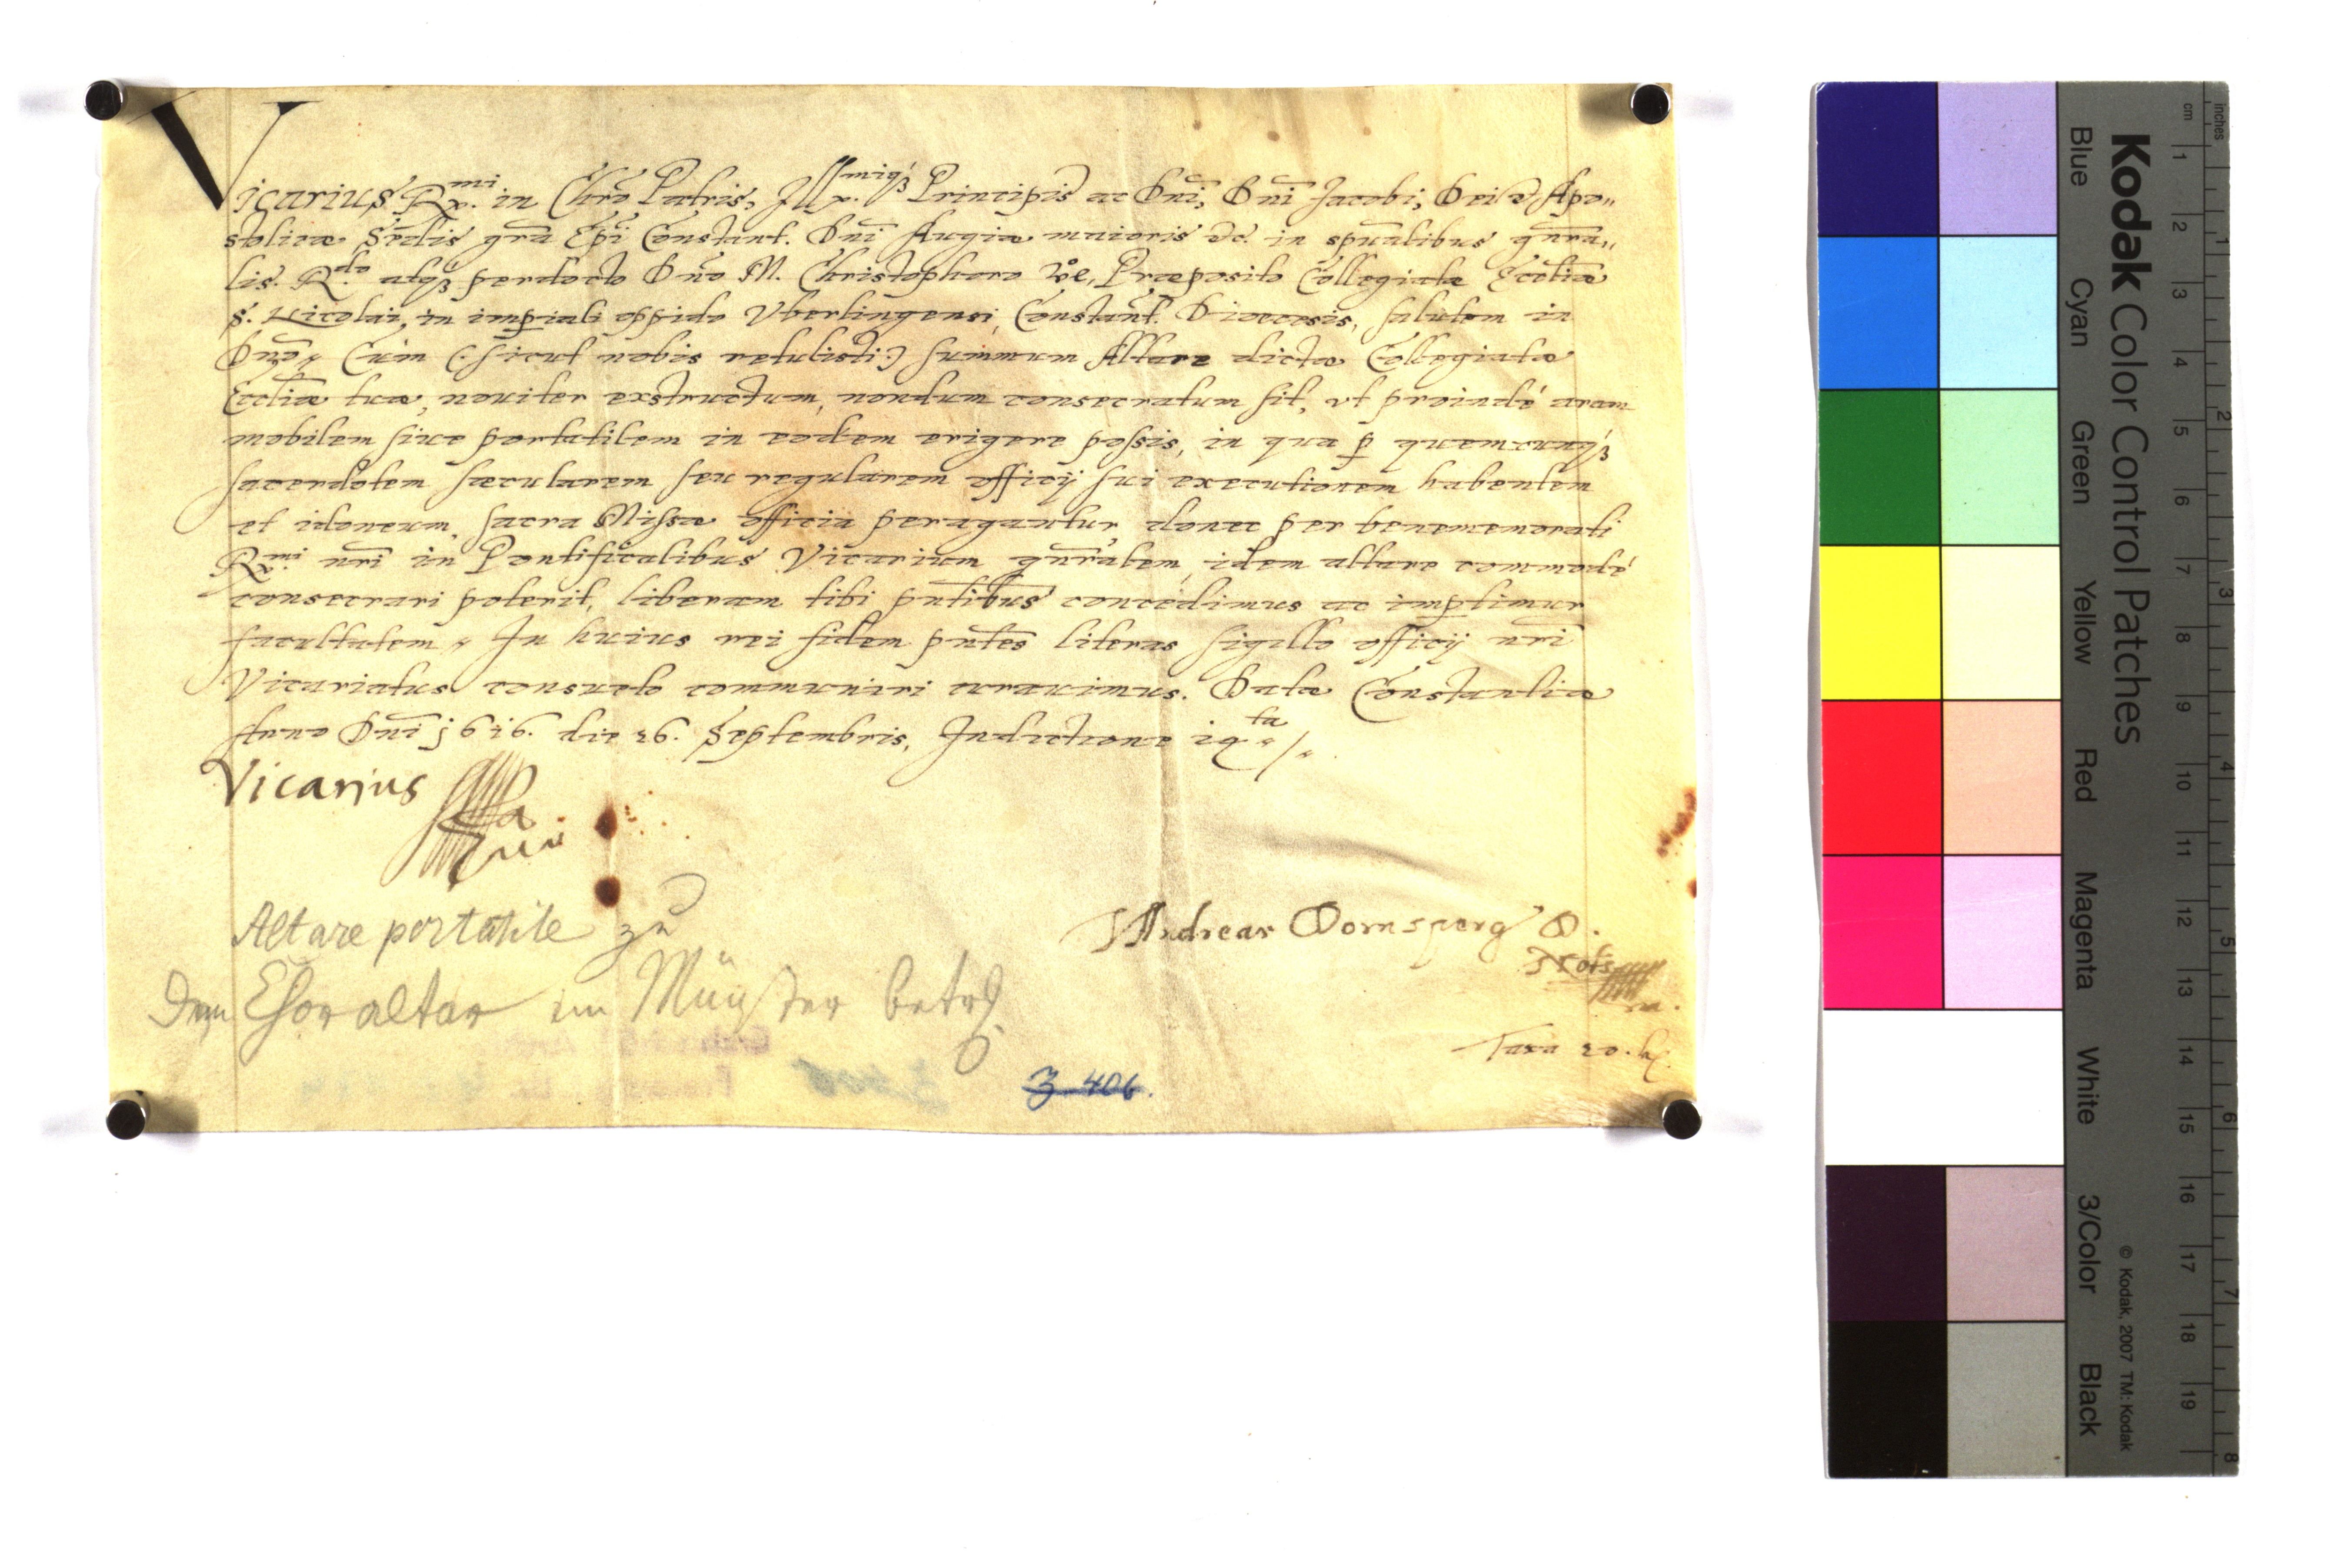 Vicarius R.mi in Chro Patris, Ill.miq3 Principis ac Dni, Dni Jacobi, Dei & Apo„
stolicæ Sedis gra Epi Constant. Dni Augiæ maioris &c. in spualibus gnra„
lis. R.do atq3 perdocto Dno M. Christophoro Præposito Collegiatæ Eccliæ
S. Nicolai, in imperiali oppido Vberlingensi, Constant. Dioecesis, salutem in
Dno. Cùm (: sicut nobis retulisti :) summum Altare dictæ Collegiatæ
Eccliæ tuæ, nouiter exstructum, nondum consecratum sit, vt proindé aram
mobilem siue portatilem in eodem erigere possis, in qua p quemcunq3
sacerdotem sæcularem seu regularem officij sui executionem habentem
et idoneum, sacra Missæ officia peragantur, donec per benememorati
R.mi nri in Pontificalibus Vicarium gnralem, idem altare commodé
consecrari poterit, liberam tibi pntibus concedimus ac imptimur
facultatem. In huius rei fidem pntes literas sigillo officij nri
Vicariatus consueto communiri curauimus. Datæ Constantiæ
Anno Dni 1616. die 26. Septembris, Indictione 14ta
Vicarius
Altare portatile zu
Dem Choraltar im Münster betr
Andreas Dornsperg D.
Taxa 20.
Z 406.
Kodak Color Control Patches
Blue Cyan Green Yellow Red Magenta White 3/Color Black
© Kodak, 2007 TM: Kodak
cm 1 2 3 4 5 6 7 8 9 10 11 12 13 14 15 16 17 18 19
inches 1 2 3 4 5 6 7 8